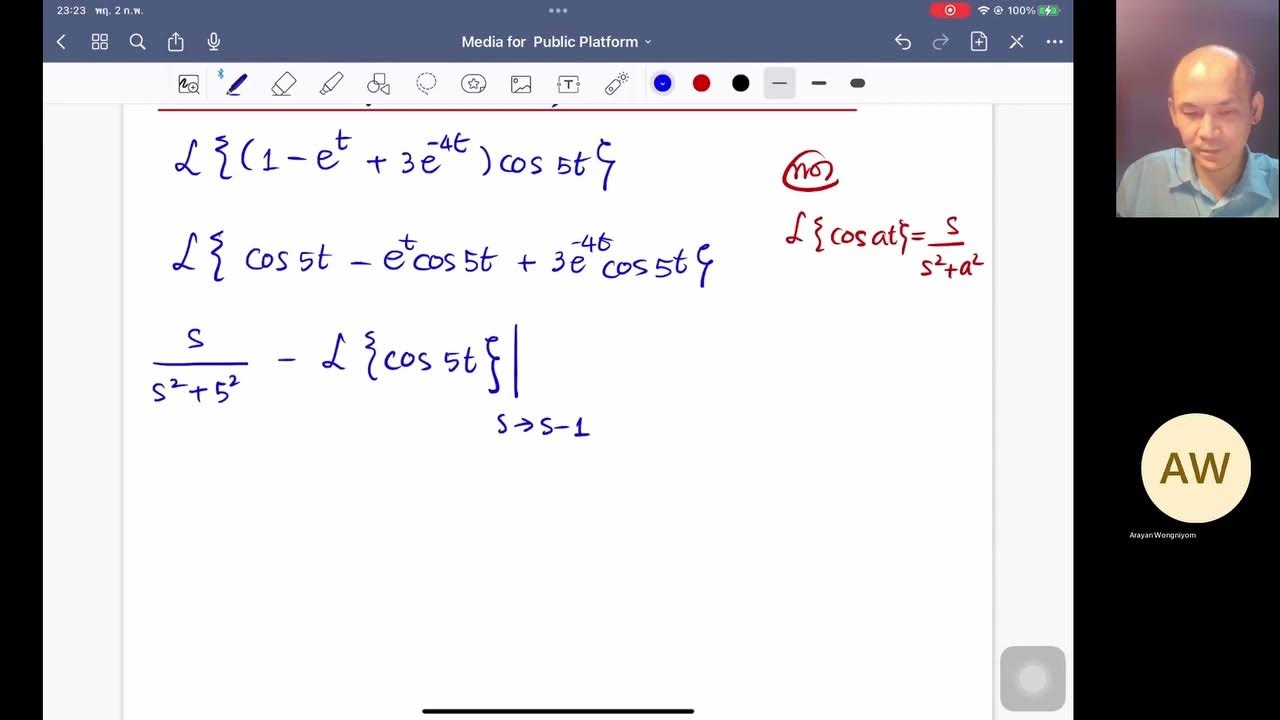 23:23 พฤ. 2 ก.พ.
100%
Media for Public Platform
ℒ{(1 − e^t + 3e^{-4t}) cos 5t}
ℒ{cos at} = s/(s²+a²)
ℒ{cos 5t − e^t cos 5t + 3e^{-4t} cos 5t}
s/(s²+5²) − ℒ{cos 5t}|
s→s−1
AW
Arayan Wongniyom